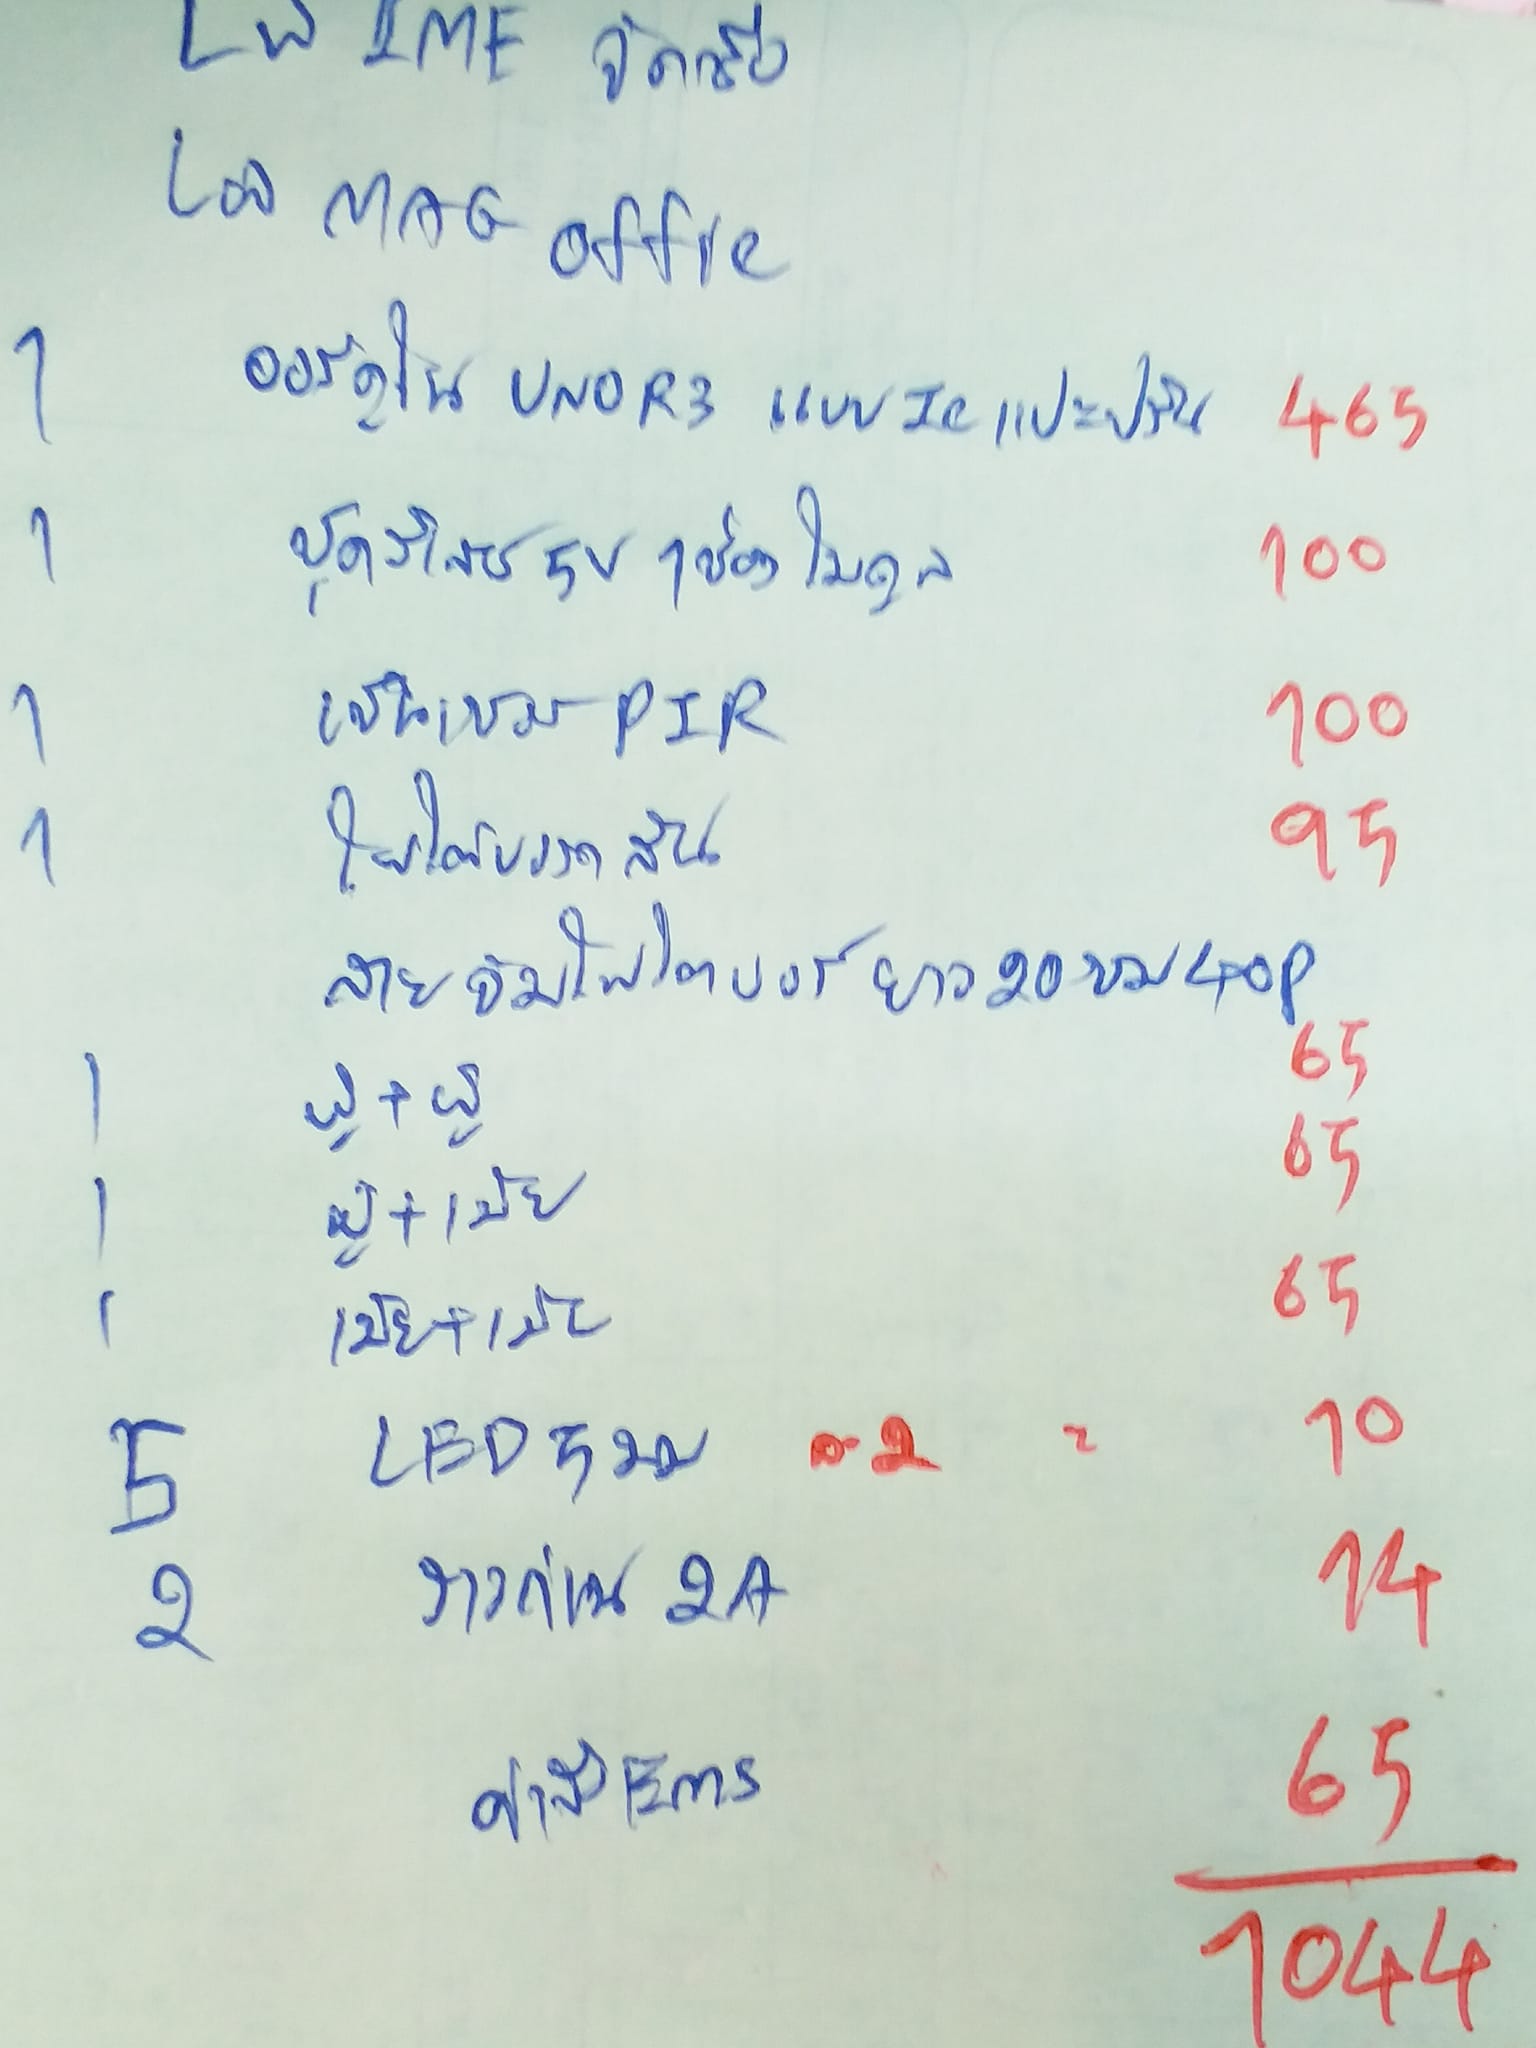 เพจ IME จัดเซ็ต
เพจ MAG office
1 ออร์ดูโน UNO R3 แบบ Ic แปะปริ้น 465
1 ชุดรีเลย์ 5V 1 ช่อง โมดูล 100
1 เซ็นเซอร์ PIR 100
1 โฟโต้บอร์ด สั้น 95
สายจัมโฟโตบอร์ ยาว 20 ซม 40P
1 ผู้+ผู้ 65
1 ผู้+เมีย 65
1 เมีย+เมีย 65
5 LED 5 มม ละ 2 = 10
2 รางถ่าน 2A 14
ค่าส่ง Ems 65
1044